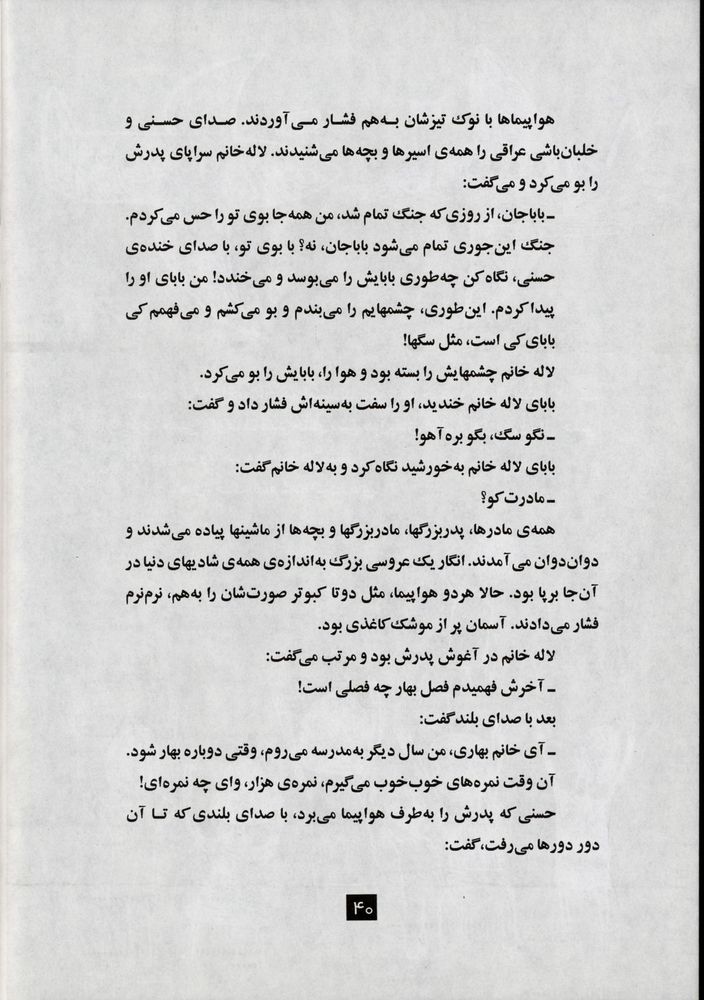 هواپیماها با نوک تیزشان به‌هم فشار می‌آوردند. صدای حسنی و
خلبان‌باشی عراقی را همه‌ی اسیرها و بچه‌ها می‌شنیدند. لاله‌خانم سراپای پدرش
را بو می‌کرد و می‌گفت:
ـ باباجان، از روزی‌که جنگ تمام شد، من همه‌جا بوی تو را حس می‌کردم.
جنگ این‌جوری تمام می‌شود باباجان، نه؟ با بوی تو، با صدای خنده‌ی
حسنی، نگاه‌کن چه‌طوری بابایش را می‌بوسد و می‌خندد! من بابای او را
پیدا کردم. این‌طوری، چشمهایم را می‌بندم و بو می‌کشم و می‌فهمم کی
بابای‌کی است، مثل سگها!
لاله خانم چشمهایش را بسته بود و هوا را، بابایش را بو می‌کرد.
بابای لاله خانم خندید، او را سفت به‌سینه‌اش فشار داد و گفت:
ـ نگو سگ، بگو بره‌آهو!
بابای لاله خانم به‌خورشید نگاه‌کرد و به‌لاله خانم‌گفت:
ـ مادرت‌کو؟
همه‌ی مادرها، پدربزرگها، مادربزرگها و بچه‌ها از ماشینها پیاده می‌شدند و
دوان‌دوان می‌آمدند. انگار یک عروسی بزرگ به‌اندازه‌ی همه‌ی شادیهای دنیا در
آن‌جا برپا بود. حالا هردو هواپیما، مثل دوتا کبوتر صورت‌شان را به‌هم، نرم‌نرم
فشار می‌دادند. آسمان پر از موشک‌کاغذی بود.
لاله خانم در آغوش پدرش بود و مرتب می‌گفت:
ـ آخرش فهمیدم فصل بهار چه فصلی است!
بعد با صدای بلندگفت:
ـ آی خانم بهاری، من سال دیگر به‌مدرسه می‌روم، وقتی دوباره بهار شود.
آن وقت نمره‌های خوب‌خوب می‌گیرم، نمره‌ی هزار، وای چه نمره‌ای!
حسنی که پدرش را به‌طرف هواپیما می‌برد، با صدای بلندی که تا آن
دور دورها می‌رفت،گفت:
۴۰